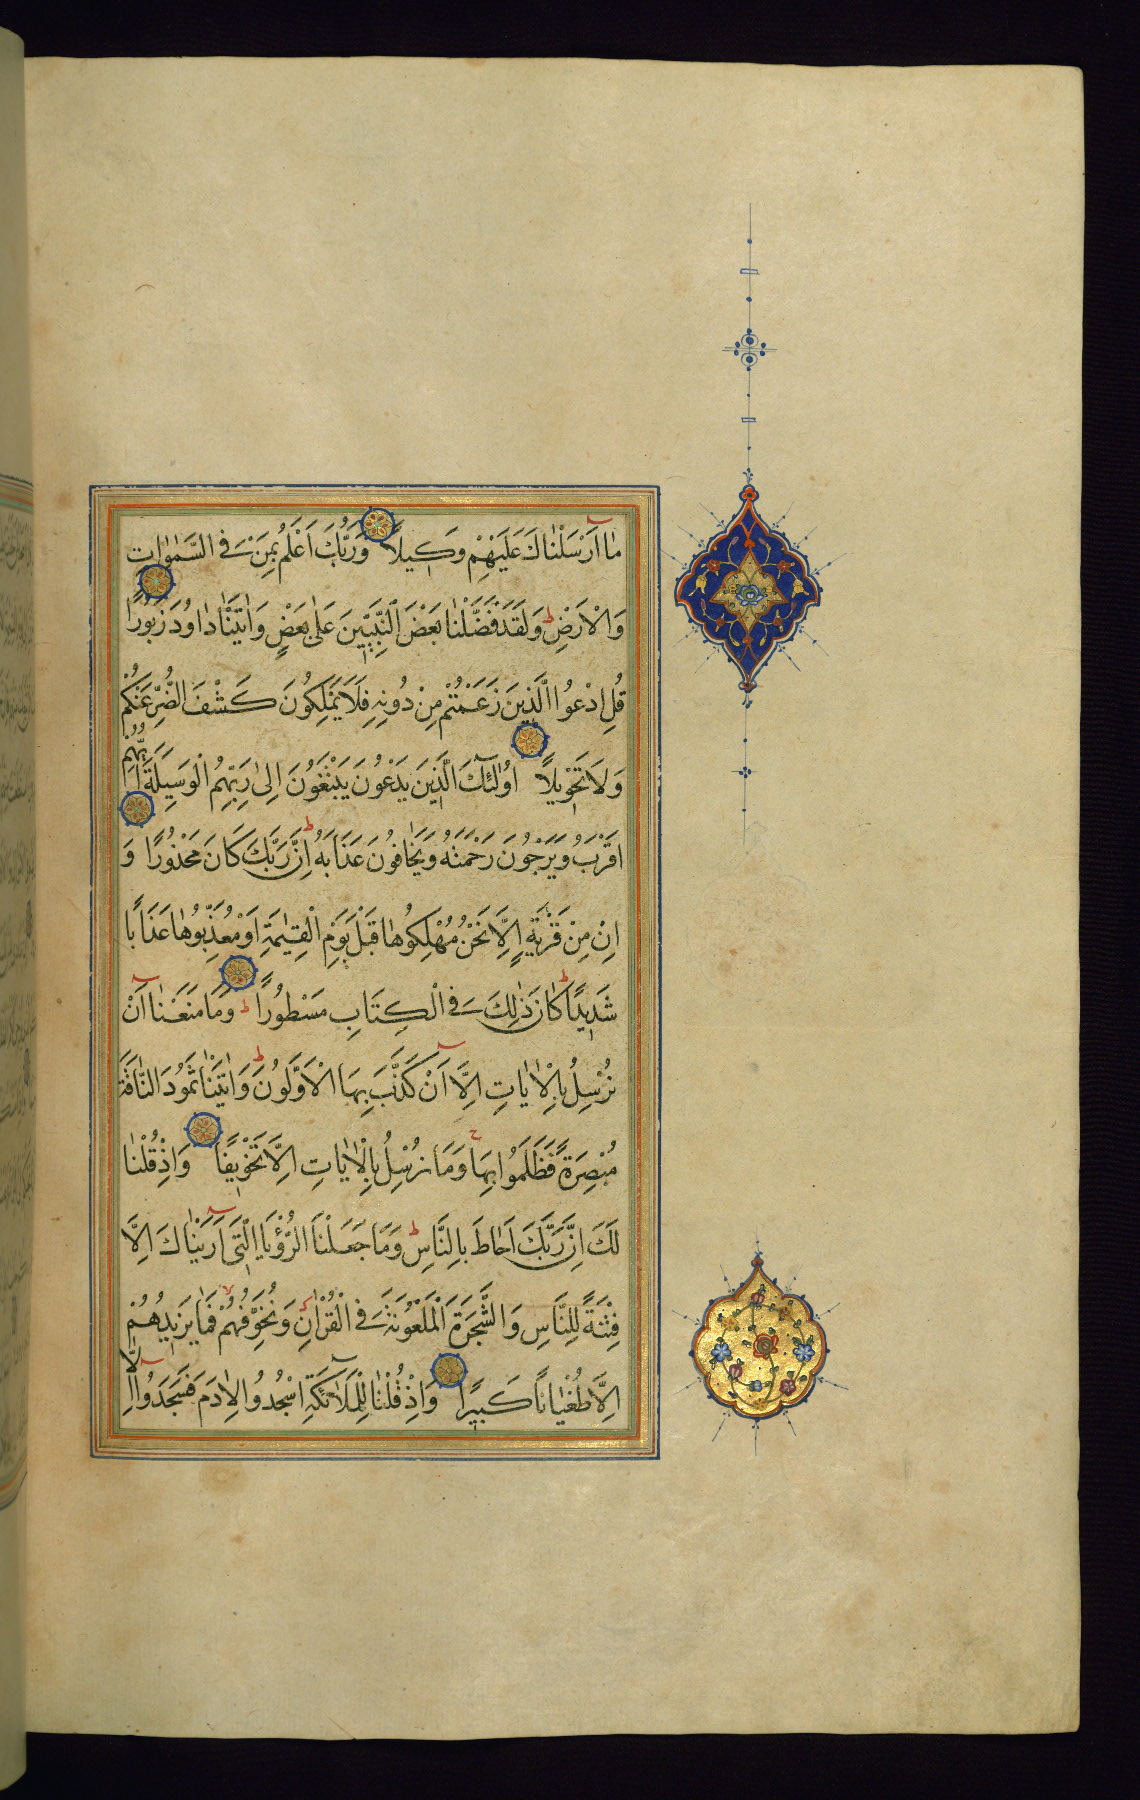 مٰا اَرْسَلْنٰاكَ عَلَيْهِمْ وَكِيلًا وَرَبُّكَ اَعْلَمُ بِمَنْ فِي السَّمٰوٰاتِ
وَالْاَرْضِ وَلَقَدْ فَضَّلْنٰا بَعْضَ النَّبِيِّينَ عَلٰى بَعْضٍ وَاٰتَيْنٰا دٰاوُدَ زَبُورًا
قُلِ ادْعُوا الَّذِينَ زَعَمْتُمْ مِنْ دُونِهِ فَلَا يَمْلِكُونَ كَشْفَ الضُّرِّ عَنْكُمْ
وَلَا تَحْوِيلًا اُولٰئِكَ الَّذِينَ يَدْعُونَ يَبْتَغُونَ اِلٰى رَبِّهِمُ الْوَسِيلَةَ اَيُّهُمْ
اَقْرَبُ وَيَرْجُونَ رَحْمَتَهُ وَيَخٰافُونَ عَذَابَهُ اِنَّ رَبَّكَ كَانَ مَحْذُورًا وَ
اِنْ مِنْ قَرْيَةٍ اِلَّا نَحْنُ مُهْلِكُوهٰا قَبْلَ يَوْمِ الْقِيٰمَةِ اَوْ مُعَذِّبُوهٰا عَذَابًا
شَدِيدًا كٰانَ ذٰلِكَ فِي الْكِتَابِ مَسْطُورًا وَمَا مَنَعَنٰا اَنْ
نُرْسِلَ بِالْاٰيٰاتِ اِلَّا اَنْ كَذَّبَ بِهَا الْاَوَّلُونَ وَاٰتَيْنٰا ثَمُودَ النّٰاقَةَ
مُبْصِرَةً فَظَلَمُوا بِهَا وَمَا نُرْسِلُ بِالْاٰيٰاتِ اِلَّا تَخْوِيفًا وَاِذْ قُلْنٰا
لَكَ اِنَّ رَبَّكَ اَحٰاطَ بِالنَّاسِ وَمَا جَعَلْنَا الرُّؤْيَا الَّتِي اَرَيْنٰاكَ اِلَّا
فِتْنَةً لِلنَّاسِ وَالشَّجَرَةَ الْمَلْعُونَةَ فِي الْقُرْاٰنِ وَنُخَوِّفُهُمْ فَمٰا يَزِيدُهُمْ
اِلَّا طُغْيٰانًا كَبِيرًا وَاِذْ قُلْنٰا لِلْمَلٰائِكَةِ اسْجُدُوا لِاٰدَمَ فَسَجَدُوا اِلَّا